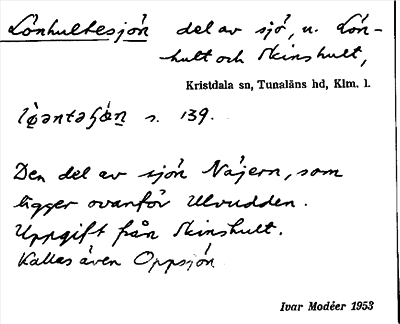 Lönhultesjön del av sjö, n. Lön-
hult och Skinshult,
Kristdala sn, Tunaläns hd, Klm. l.
s. 139.
Den del av sjön Näjern, som
ligger ovanför Ulvudden.
Uppgift från Skinshult.
Kallas även Oppsjön
Ivar Modéer 1953